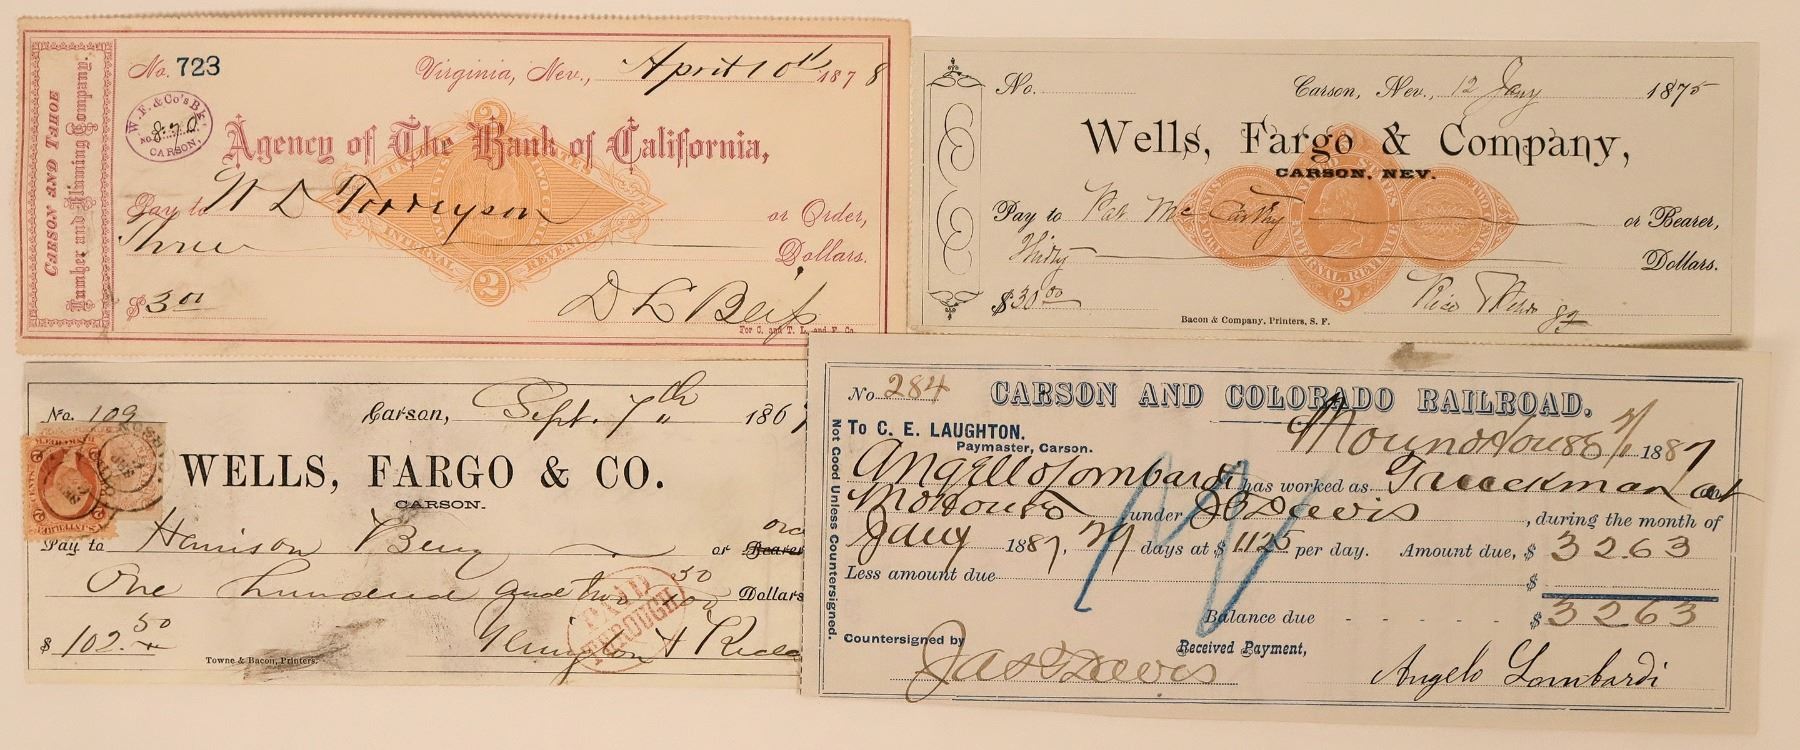 CARSON AND TAHOE
Lumber and Fluming Company.
No. 723
Virginia, Nev., April 10th 1878
W. F. & Co's B'k
No. 870
CARSON,
Agency of The Bank of California,
Pay to W D Torreyson or Order,
Three Dollars.
$3.00
D L Bliss
For C. and T. L. and F. Co.
2
INTERNAL REVENUE
2
No.
Carson, Nev., 12 Jany 1875
Wells, Fargo & Company,
CARSON, NEV.
Pay to Pat McCarthy or Bearer,
Thirty Dollars.
$30.00
UNITED STATES
INTERNAL REVENUE
2
Bacon & Company, Printers, S. F.
No. 109
Carson, Sept. 7th 1867
WELLS, FARGO & CO.
CARSON.
Pay to Harrison Berry or Bearer
One hundred and two 50/100 Dollars
$102.50
PAID
THROUGH
Towne & Bacon, Printers.
No 284
CARSON AND COLORADO RAILROAD.
To C. E. LAUGHTON.
Paymaster, Carson.
Moundhouse 2/1 1887
Not Good Unless Countersigned.
Angello Lombardi has worked as Trackman at
Mohouse under JS Davis, during the month of
Jany 1887, 29 days at $1.125 per day. Amount due, $3263
Less amount due $
Balance due - - - - - $3263
Countersigned by
Received Payment,
Jas Davis
Angelo Lombardi